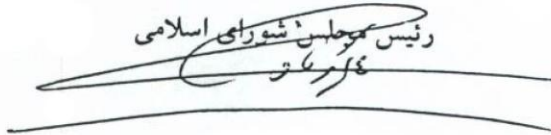 رئیس مجلس شورای اسلامی